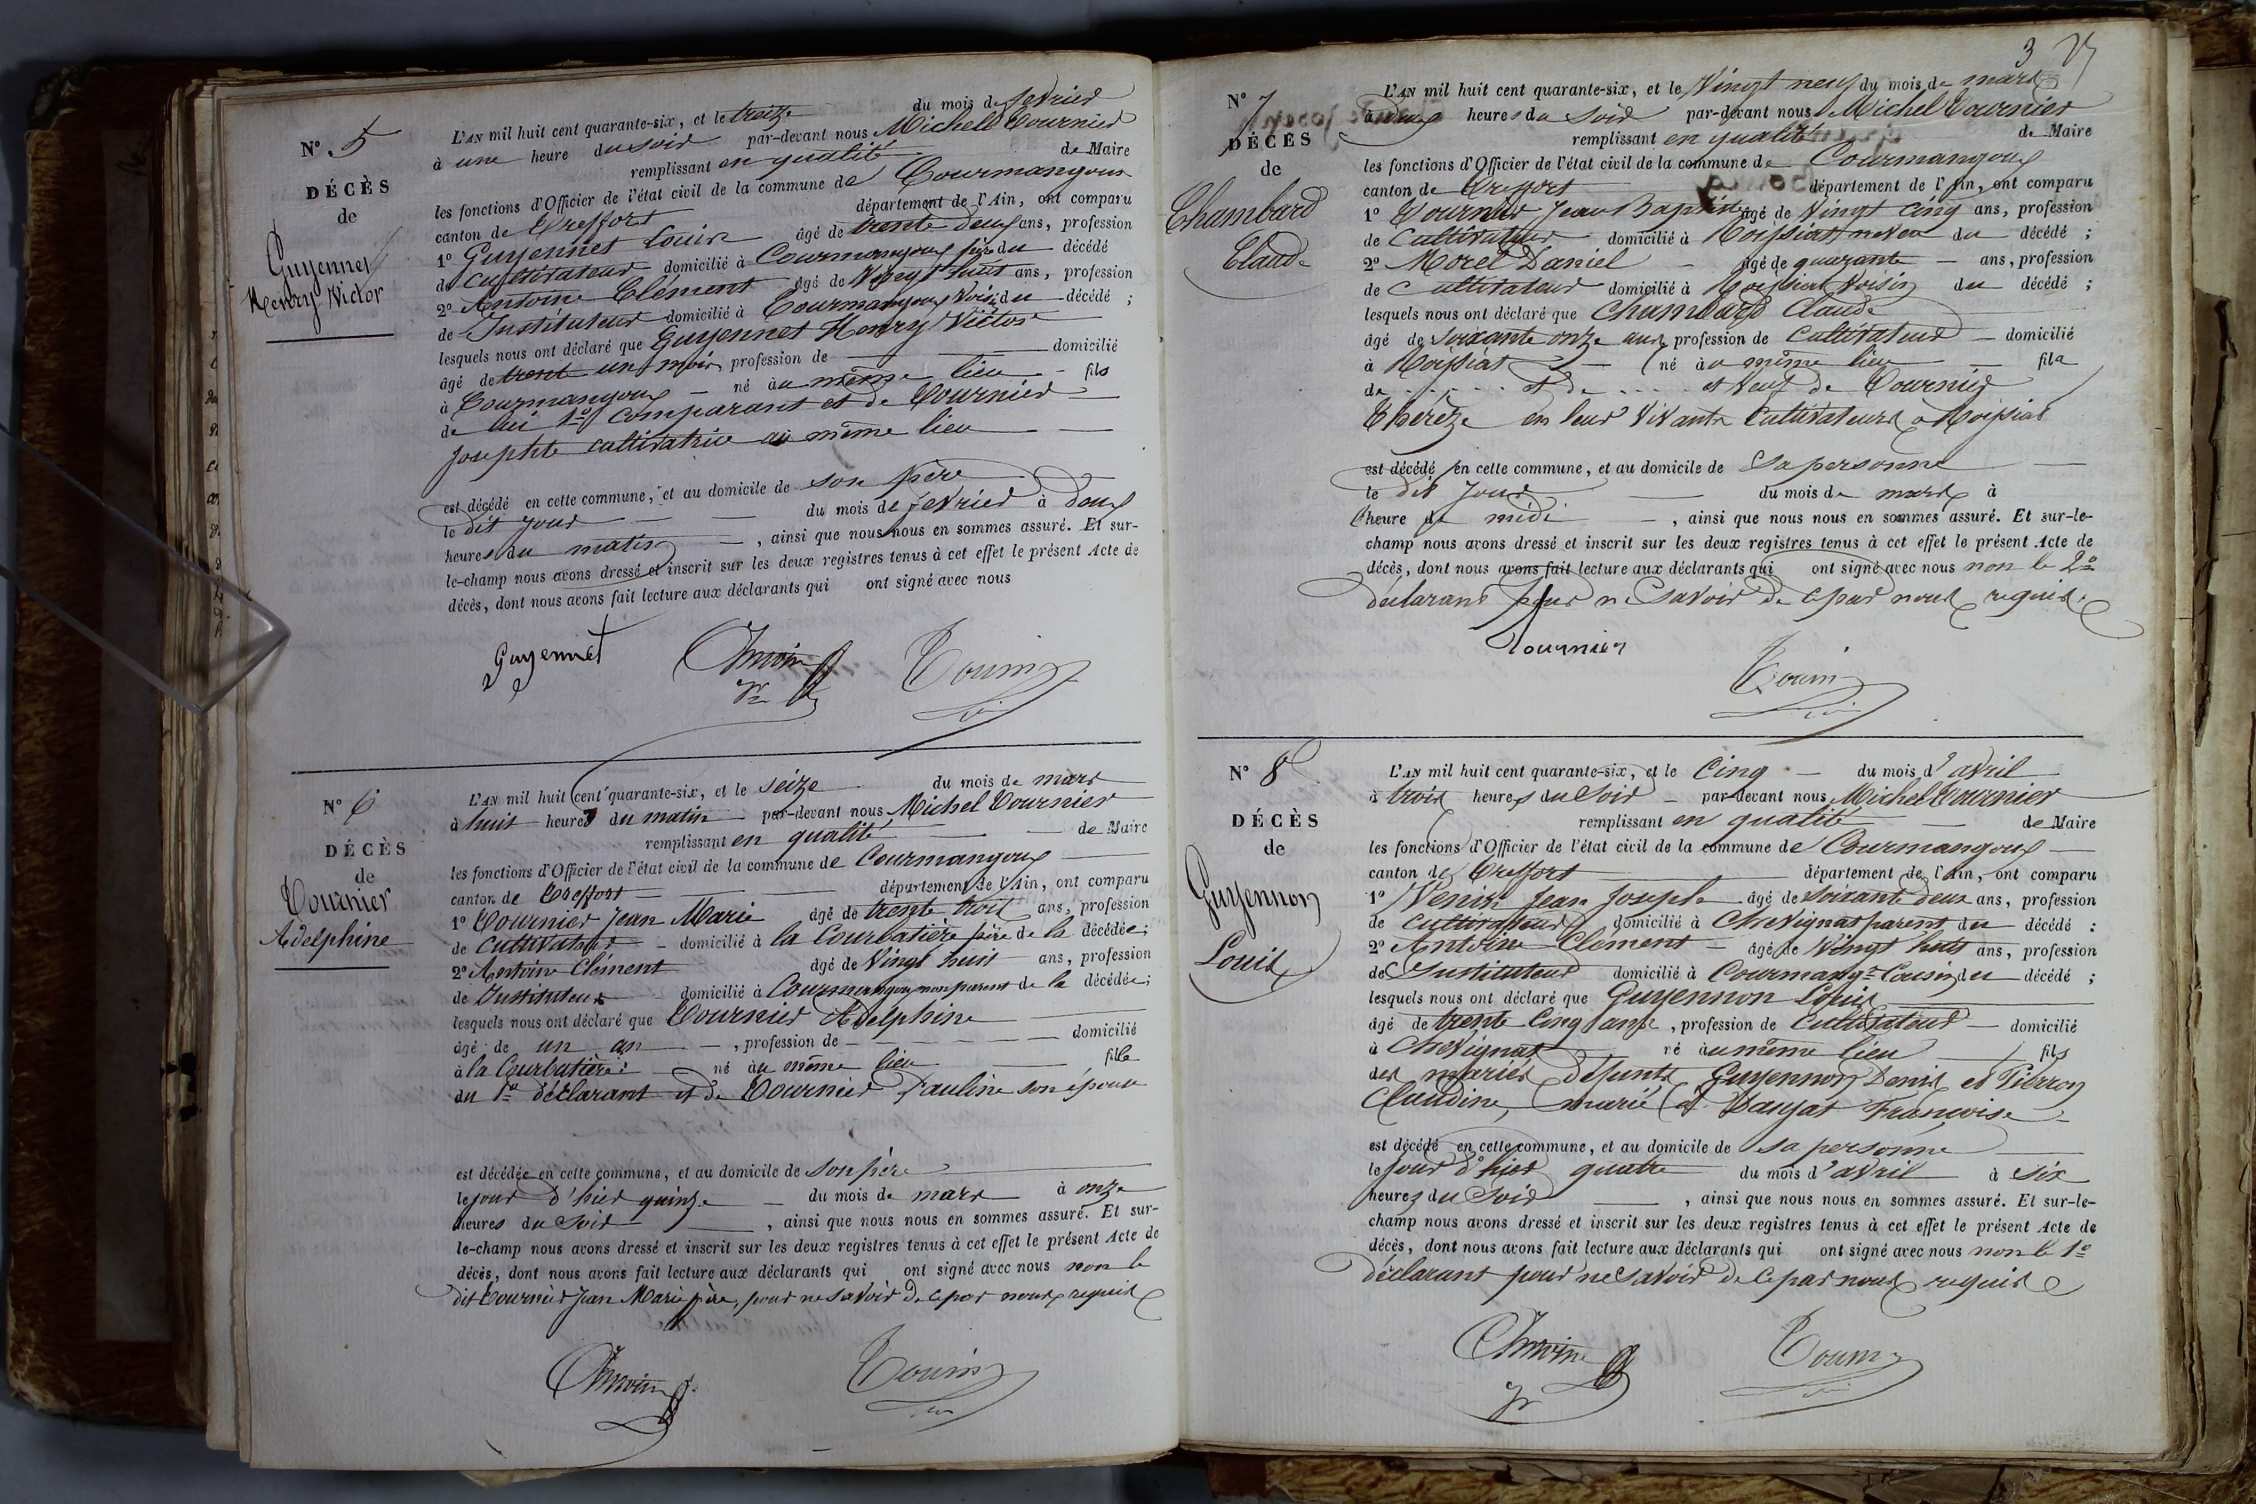 N° 5
DÉCÈS
de
Guyennet
Henry Victor
L'AN mil huit cent quarante-six, et le treize du mois de février
à une heure du soir par-devant nous Michel Tournier
remplissant en qualité de Maire
les fonctions d'Officier de l'état civil de la commune de Courmangoux
canton de Treffort département de l'Ain, ont comparu
1° Guyennet Louis âgé de trente deux ans, profession
de cultivateur domicilié à Courmangoux père du décédé
2° Antoine Clément âgé de Vingt huit ans, profession
de Instituteur domicilié à Courmangoux Voisin du décédé ;
lesquels nous ont déclaré que Guyennet Henry Victor
âgé de trent un mois profession de domicilié
à Courmangoux né au même lieu fils
de lui 1er comparant et de Tournier
Josephte cultivatrice au même lieu
est décédé en cette commune, et au domicile de son père
le dit jour du mois de février à deux
heures du matin, ainsi que nous nous en sommes assuré. Et sur-
le-champ nous avons dressé et inscrit sur les deux registres tenus à cet effet le présent Acte de
décès, dont nous avons fait lecture aux déclarants qui ont signé avec nous
Guyennet Antoine Tournier
N° 6
DÉCÈS
de
Tournier
Adelphine
L'AN mil huit cent quarante-six, et le seize du mois de mars
à huit heures du matin par-devant nous Michel Tournier
remplissant en qualité de Maire
les fonctions d'Officier de l'état civil de la commune de Courmangoux
canton de Treffort département de l'Ain, ont comparu
1° Tournier Jean Marie âgé de trente trois ans, profession
de cultivateur domicilié à la Courbatière père de la décédée ;
2° Antoine Clément âgé de Vingt huit ans, profession
de Instituteur domicilié à Courmangoux non parent de la décédée ;
lesquels nous ont déclaré que Tournier Adelphine
âgé de un an, profession de domicilié
à la Courbatière né au même lieu fille
du 1er déclarant et de Tournier Pauline son épouse
est décédée en cette commune, et au domicile de son père
le jour d'hier quinze du mois de mars à onze
heures du soir, ainsi que nous nous en sommes assuré. Et sur-
le-champ nous avons dressé et inscrit sur les deux registres tenus à cet effet le présent Acte de
décès, dont nous avons fait lecture aux déclarants qui ont signé avec nous non le
dit Tournier Jean Marie père, pour ne savoir de ce par nous requis
Antoine Tournier
3
N° 7
DÉCÈS
de
Chambard
Claude
L'AN mil huit cent quarante-six, et le Vingt neuf du mois de mars
à deux heures du soir par-devant nous Michel Tournier
remplissant en qualité de Maire
les fonctions d'Officier de l'état civil de la commune de Courmangoux
canton de Treffort département de l'Ain, ont comparu
1° Tournier Jean Baptiste âgé de Vingt cinq ans, profession
de Cultivateur domicilié à Roissiat neveu du décédé ;
2° Morel Daniel âgé de quarante ans, profession
de Cultivateur domicilié à Roissiat Voisin du décédé ;
lesquels nous ont déclaré que Chambard Claude
âgé de soixante onze ans profession de Cultivateur domicilié
à Roissiat né au même lieu fils
de et de et Veuf de Tournier
Thereze en leur Vivants Cultivateurs à Roissiat
est décédé en cette commune, et au domicile de sa personne
le dit jour du mois de mars à
heure de midi, ainsi que nous nous en sommes assuré. Et sur-le-
champ nous avons dressé et inscrit sur les deux registres tenus à cet effet le présent Acte de
décès, dont nous avons fait lecture aux déclarants qui ont signé avec nous non le 2e
déclarant pour ne savoir de ce par nous requis.
Tournier Tournier
N° 8
DÉCÈS
de
Guyennon
Louis
L'AN mil huit cent quarante-six, et le Cinq du mois d'avril
à trois heures du soir par-devant nous Michel Tournier
remplissant en qualité de Maire
les fonctions d'Officier de l'état civil de la commune de Courmangoux
canton de Treffort département de l'Ain, ont comparu
1° Jean Joseph âgé de soixante deux ans, profession
de cultivateur domicilié à Chevignat parent du décédé ;
2° Antoine Clément âgé de Vingt huit ans, profession
de Instituteur domicilié à Courmangx Cousin du décédé ;
lesquels nous ont déclaré que Guyennon Louis
âgé de trente cinq ans, profession de Cultivateur domicilié
à Chevignat né au même lieu fils
des mariés défunts Guyennon Denis et Pierron
Claudine, marié à Françoise
est décédé en cette commune, et au domicile de sa personne
le jour d'hier quatre du mois d'avril à six
heures du soir, ainsi que nous nous en sommes assuré. Et sur-le-
champ nous avons dressé et inscrit sur les deux registres tenus à cet effet le présent Acte de
décès, dont nous avons fait lecture aux déclarants qui ont signé avec nous non le 1er
déclarant pour ne savoir de ce par nous requis
Antoine Tournier